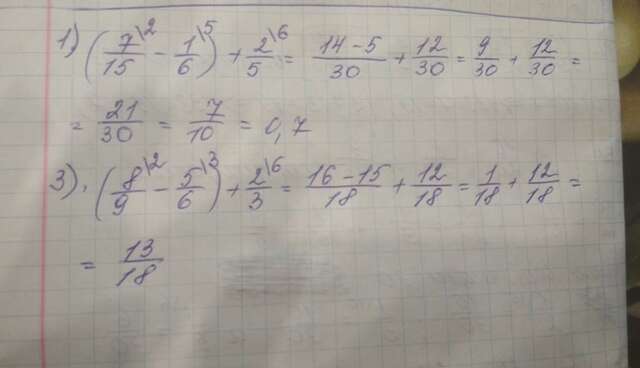 1) (7/15\2 - 1/6\5) + 2/5\6 = 14-5/30 + 12/30 = 9/30 + 12/30 =
= 21/30 = 7/10 = 0,7
3). (8/9\2 - 5/6\3) + 2/3\6 = 16-15/18 + 12/18 = 1/18 + 12/18 =
= 13/18